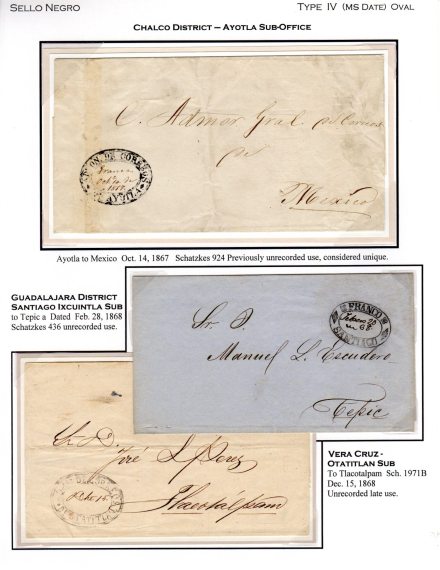 SELLO NEGRO
TYPE IV (MS DATE) OVAL
CHALCO DISTRICT – AYOTLA SUB-OFFICE
C. Admor Gral. de Correos
de
Mexico
Ayotla to Mexico Oct. 14, 1867 Schatzkes 924 Previously unrecorded use, considered unique.
GUADALAJARA DISTRICT
SANTIAGO IXCUINTLA SUB
to Tepic a Dated Feb. 28, 1868
Schatzkes 436 unrecorded use.
FRANCO
SANTIAGO
Sr. D.
Manuel L. Escudero
Tepic
Sr. D.
José L. Perez
Tlacotalpam
VERA CRUZ -
OTATITLAN SUB
To Tlacotalpam Sch. 1971B
Dec. 15, 1868
Unrecorded late use.